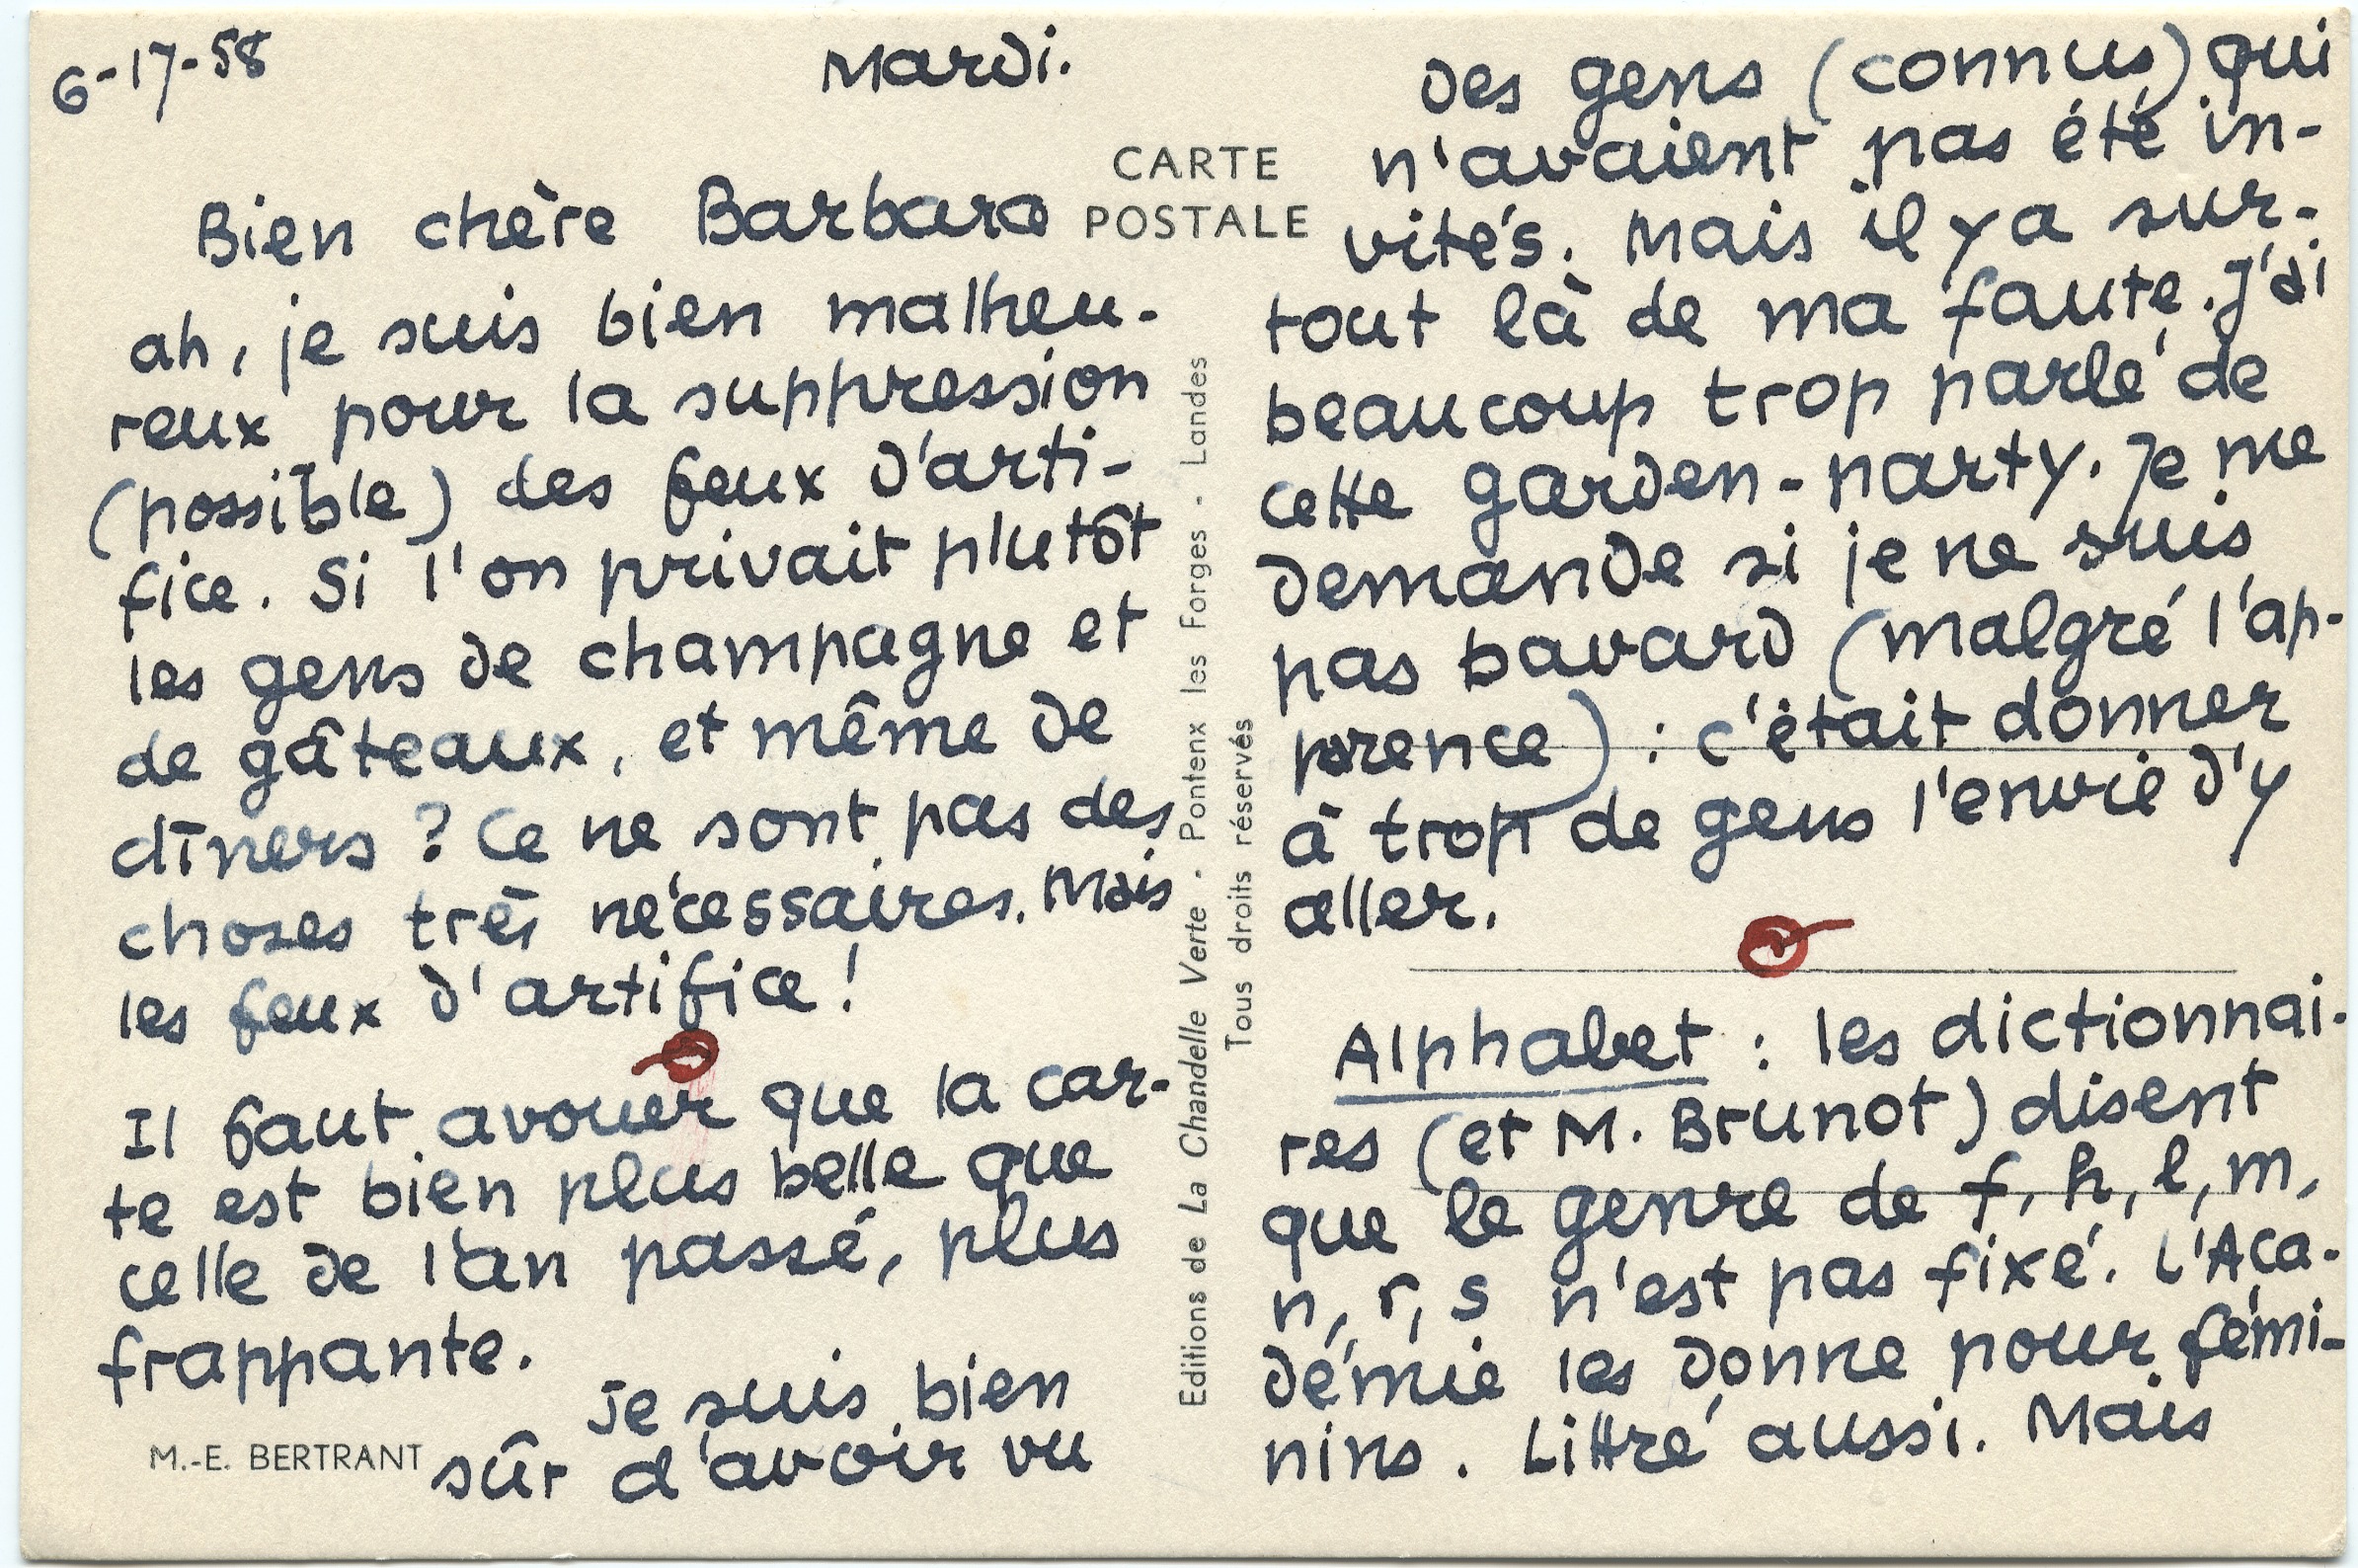 6-17-58
Mardi.
CARTE
POSTALE
Bien chère Barbara
ah, je suis bien malheu-
reux pour la suppression
(possible) des feux d'arti-
fice. Si l'on privait plutôt
les gens de champagne et
de gâteaux, et même de
dîners ? Ce ne sont pas des
choses très nécessaires. Mais
les feux d'artifice !
Il faut avouer que la car-
te est bien plus belle que
celle de l'an passé, plus
frappante.
Je suis bien
sûr d'avoir vu
M.-E. BERTRANT
Editions de La Chandelle Verte - Pontenx les Forges - Landes
Tous droits réservés
des gens (connus) qui
n'avaient pas été in-
vités. Mais il y a sur-
tout là de ma faute. J'ai
beaucoup trop parlé de
cette garden-party. Je me
demande si je ne suis
pas bavard (malgré l'ap-
parence) : c'était donner
à trop de gens l'envie d'y
aller.
Alphabet : les dictionnai-
res (et M. Brunot) disent
que le genre de f, h, l, m,
n, r, s n'est pas fixé. L'Aca-
démie les donne pour fémi-
nins. Littré aussi. Mais